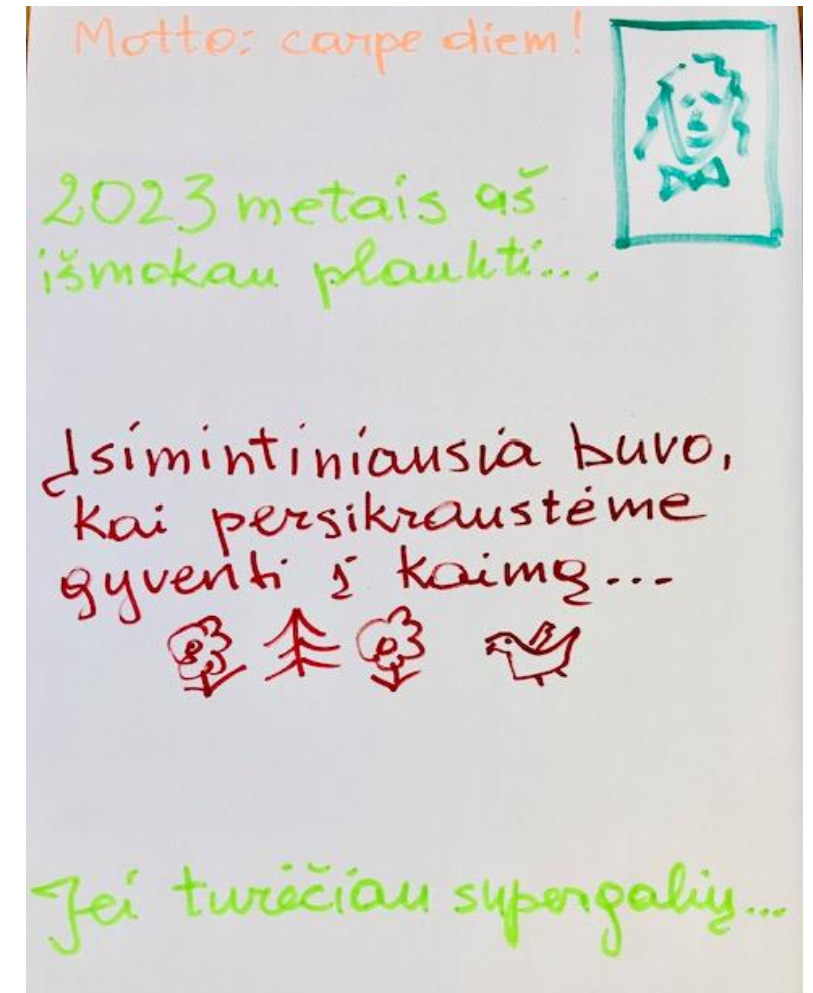 Motto: carpe diem!
2023 metais aš
išmokau plaukti...
Įsimintiniausia buvo,
kai persikraustėme
gyventi į kaimą...
Jei turėčiau supergalių...